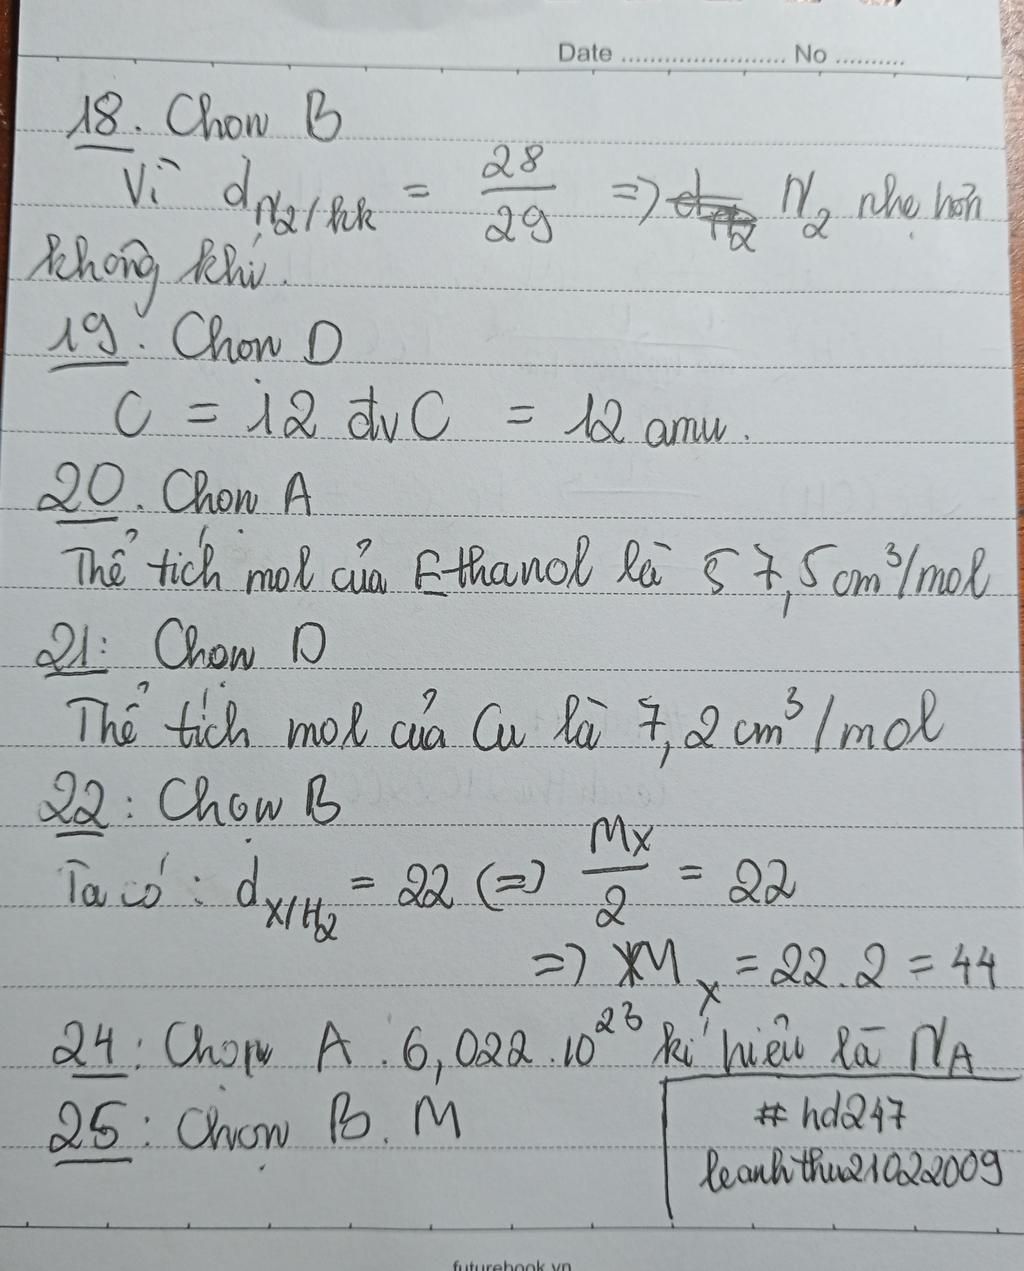 Date ........................ No ..........
18. Chọn B
Vì d N2/kk = 28/29 => N2 nhẹ hơn
không khí.
19. Chọn D
C = 12 đvC = 12 amu.
20. Chọn A
Thể tích mol của Ethanol là 57,5 cm³/mol
21: Chọn D
Thể tích mol của Cu là 7,2 cm³/mol
22: Chọn B
Ta có: d X/H2 = 22 (=) Mx/2 = 22
=> Mx = 22.2 = 44
24: Chọn A. 6,022.10²³ kí hiệu là NA
25: Chọn B. M
# hd247
leanhthu21022009
futurebook.vn